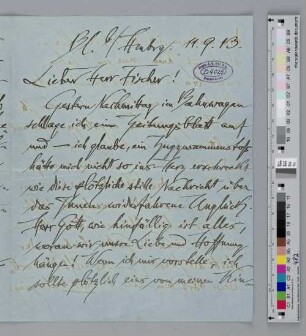 Bl. b/ Hmbrg. 11.9.13.
Lieber Herr Fischer!
Gestern Nachmittag im Bahnwagen
schlage ich ein Zeitungsblatt auf
und – ich glaube, ein Zugzusammenstoß
hätte mich nicht so ins Herz erschreckt
wie diese plötzliche stille Nachricht über
das Ihnen widerfahrene Unglück.
Herr Gott, wie hinfällig ist alles,
woran wir unsre Liebe und Hoffnung
hängen! Wenn ich mir vorstelle, ich
sollte plötzlich eins von meinen Kin-